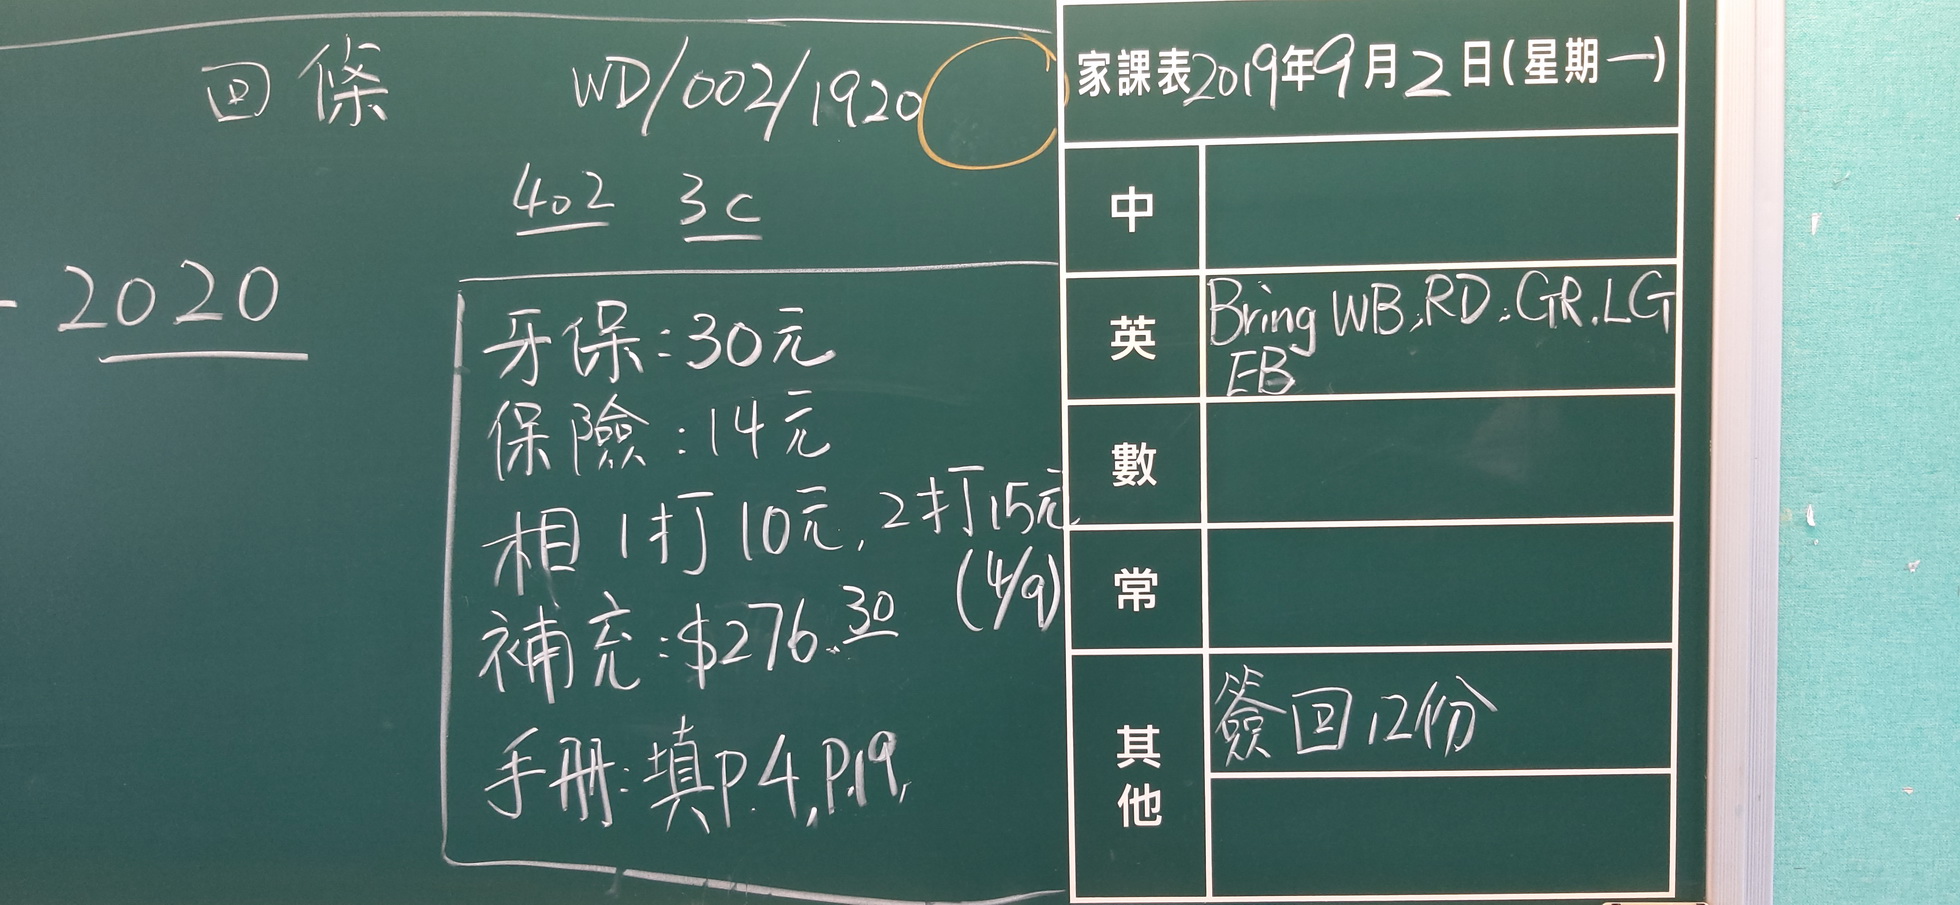 回條 WD/002/1920
402 3c
- 2020
牙保:30元
保險:14元
相 1打10元, 2打15元
(4/9)
補充:$276.30
手册:填P.4,P.19,
家課表2019年9月2日(星期一)
中
英 Bring WB,RD,GR,LG
EB
數
常
其他 簽回12份